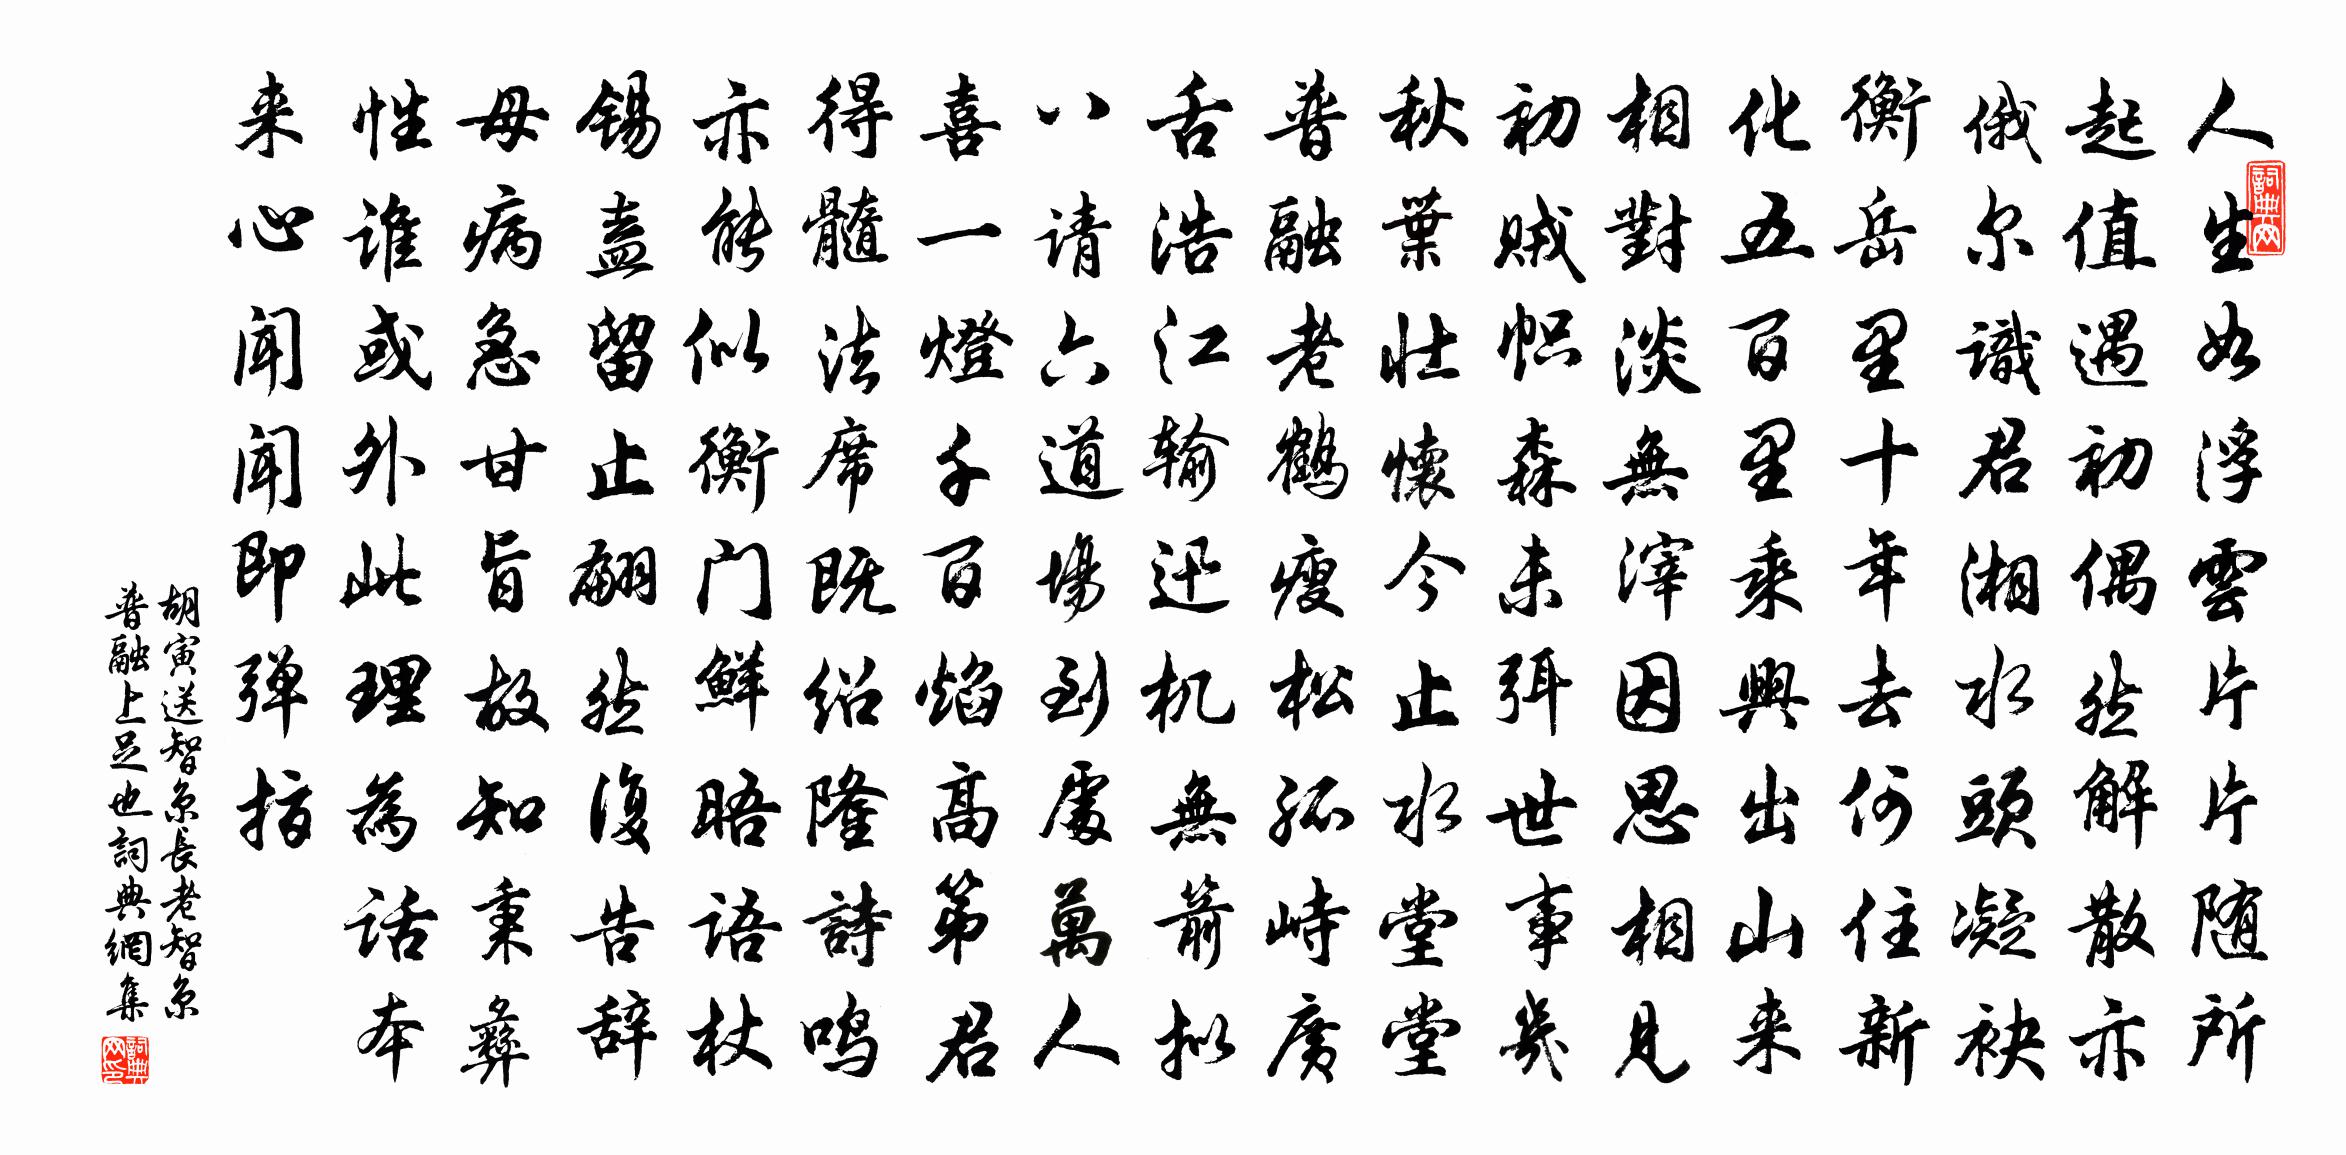 人生如浮雲片片随所
起值遇初偶然解散亦
俄尔識君湘水頭凝袂
衡岳里十年去何住新
化五百里乘興出山来
相對淡無滓因思相見
初贼帜森未弭世事幾
秋葉壮懷今止水堂堂
普融老鶴瘦松孤峙廣
舌浩江输迅机無箭拟
八请六道場到處萬人
喜一燈千百焰高第君
得髓法席既绍隆詩鸣
亦能似衡门鲜晤语杖
锡盍留止翩然復告辞
母病急甘旨故知秉彝
性谁或外此理為话本
来心闻闻即弹指
胡寅送智京長老智京
普融上足也詞典網集
詞典网
詞典网印